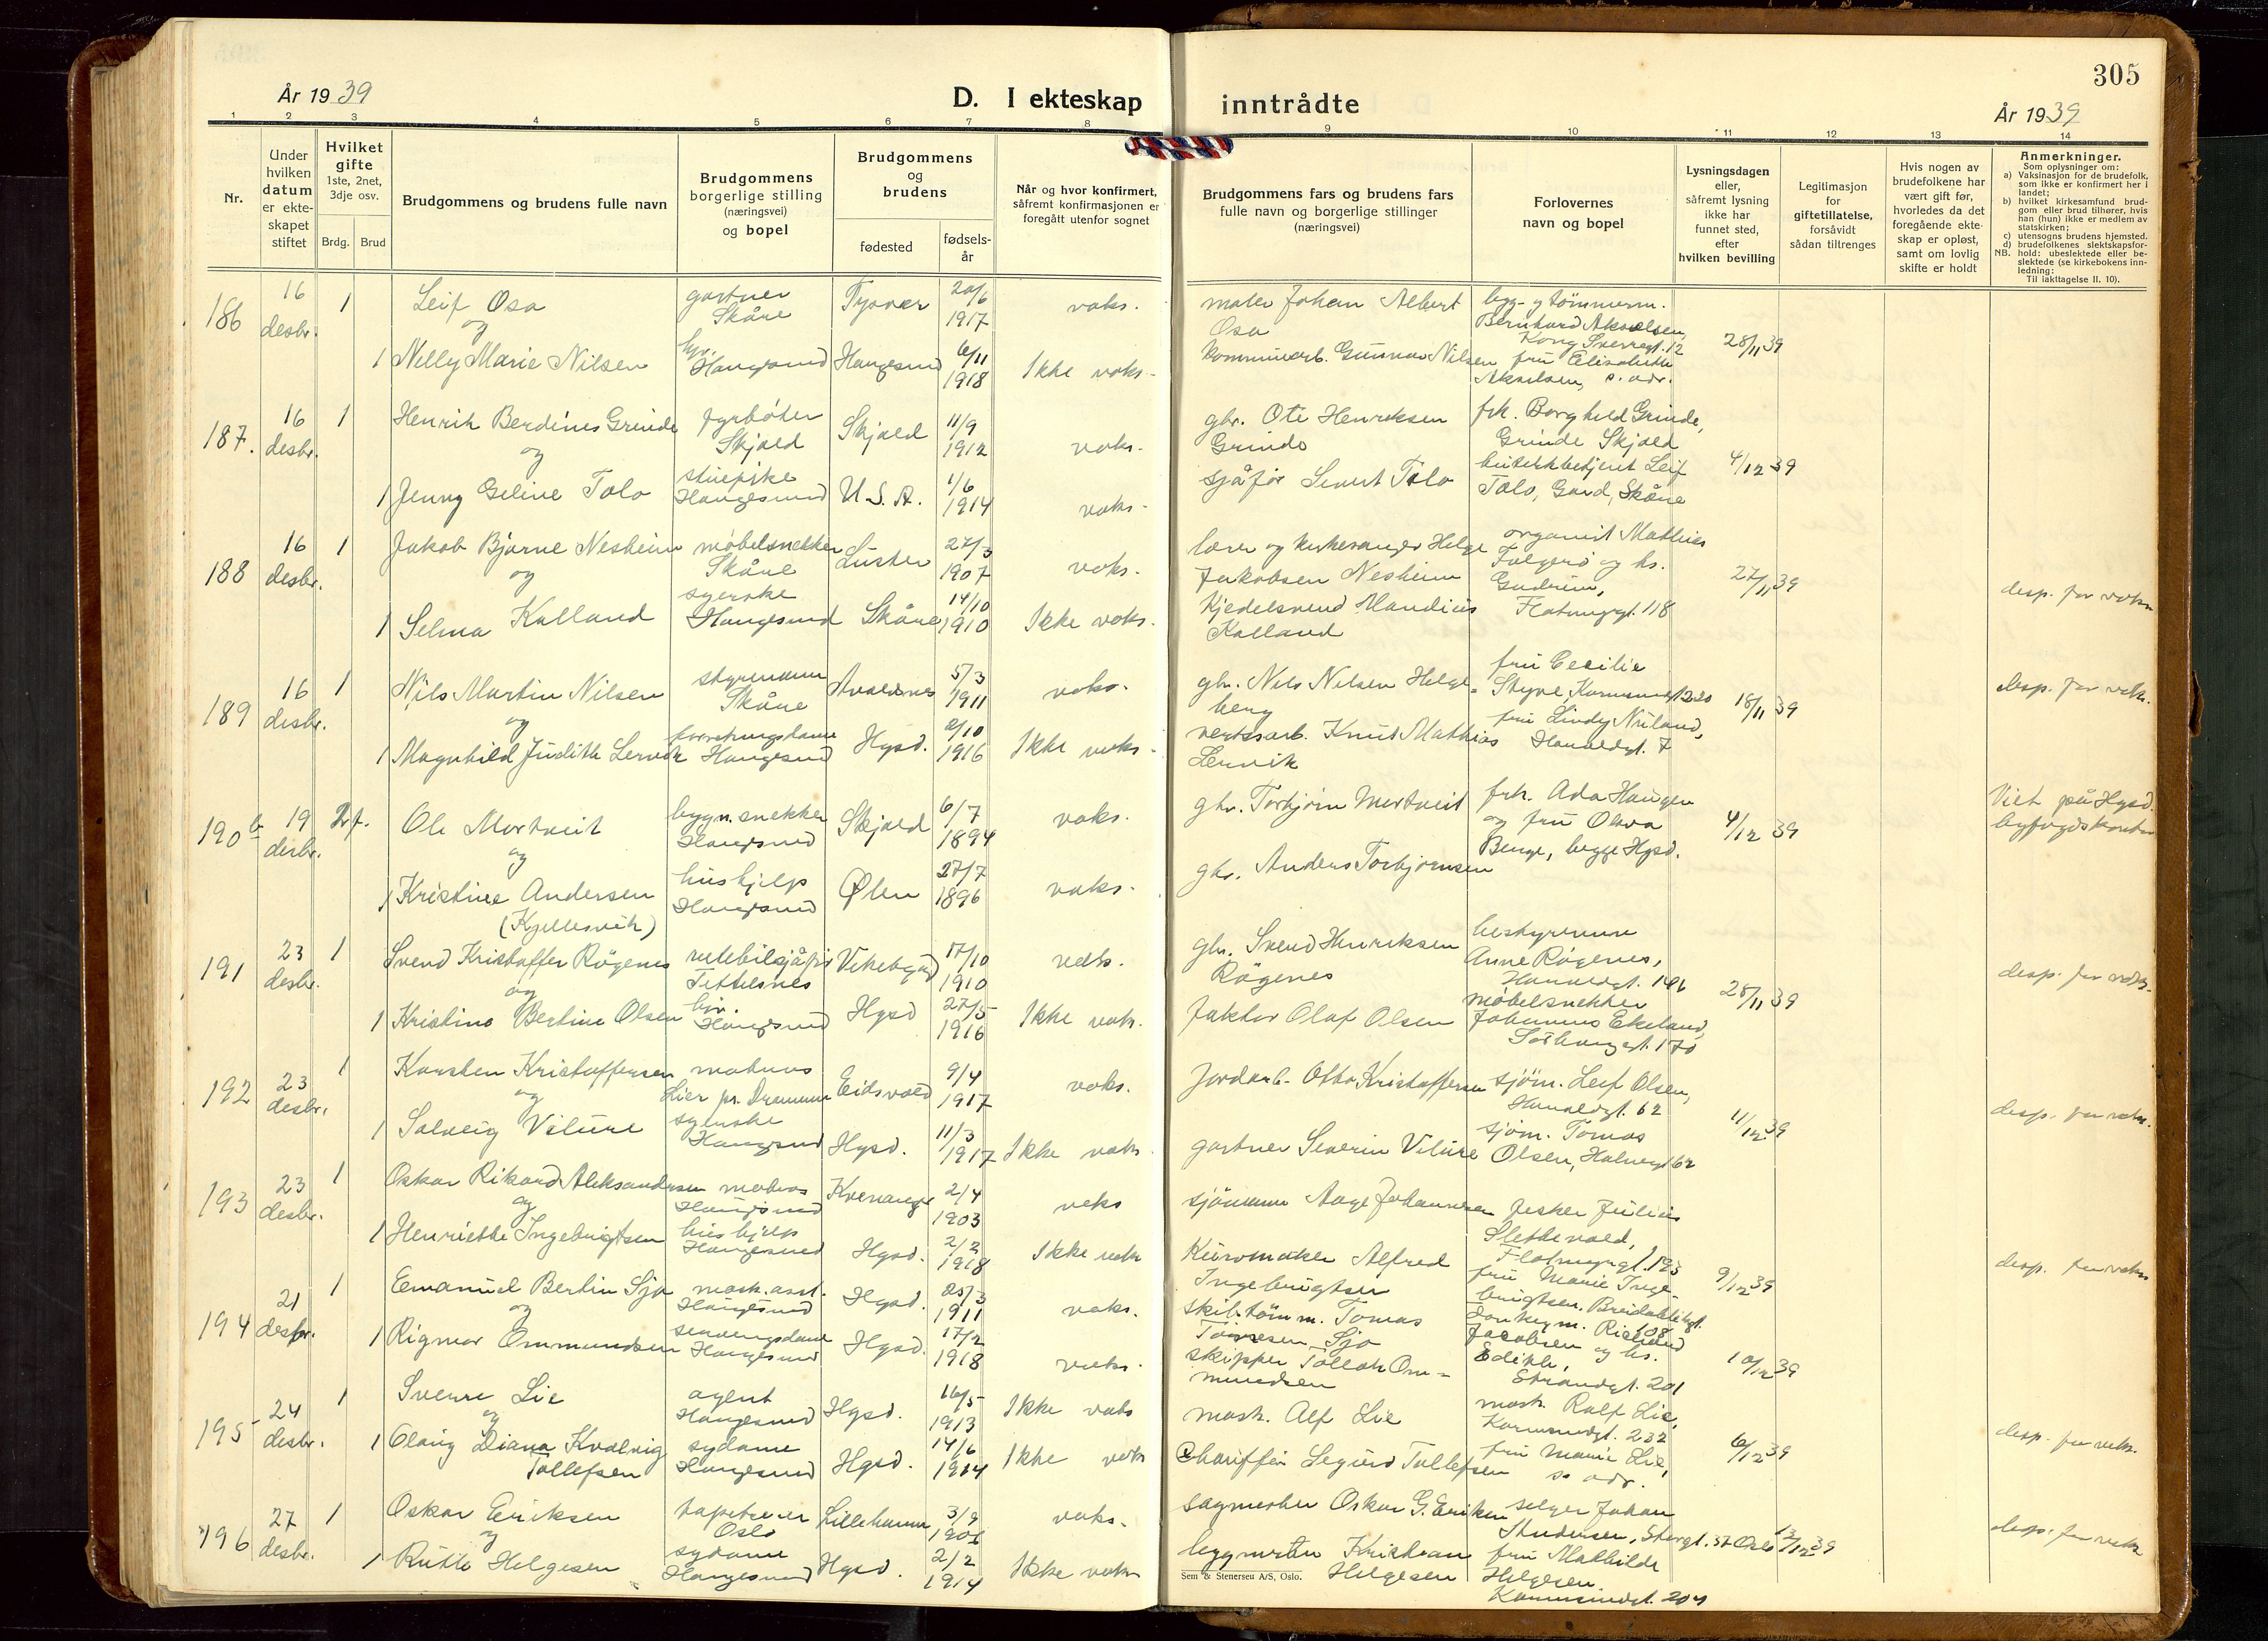 305
År 1939
D. I ekteskap inntrådte
År 1939
1 2 3 4 5 6 7 8 9 10 11 12 13 14
Nr.
Under hvilken datum er ekteskapet stiftet
Hvilket gifte 1ste, 2net, 3dje osv.
Brdg. Brud
Brudgommens og brudens fulle navn
Brudgommens borgerlige stilling (næringsvei) og bopel
Brudgommens og brudens
fødested
fødselsår
Når og hvor konfirmert, såfremt konfirmasjonen er foregått utenfor sognet
Brudgommens fars og brudens fars fulle navn og borgerlige stillinger (næringsvei)
Forlovernes navn og bopel
Lysningsdagen eller, såfremt lysning ikke har funnet sted, efter hvilken bevilling
Legitimasjon for giftetillatelse, forsåvidt sådan tiltrenges
Hvis nogen av brudefolkene har vært gift før, hvorledes da det foregående ekteskap er opløst, samt om lovlig skifte er holdt
Anmerkninger.
Som oplysninger om:
a) Vaksinasjon for de brudefolk, som ikke er konfirmert her i landet;
b) hvilket kirkesamfund brudgom eller brud tilhører, hvis han (hun) ikke er medlem av statskirken;
c) utensogns brudens hjemsted.
d) brudefolkenes slektskapsforhold: ubeslektede eller beslektede (se kirkebokens innledning:
NB. Til iakttagelse II. 10).
186 16 desbr. 1 Leif Osa gartner Skåre Tysvær 20/6 1917 vaks. maler Johan Albert Osa bygg- og tømmerm. Bernhard Akselsen, Kong Sverresgt. 12 28/11 39
og
1 Nelly Marie Nilsen Haugesund Haugesund 6/11 1918 Ikke vaks. kommunearb. Gunnar Nilsen fru Elisabeth Akselsen, s. adr.
187. 16 desbr. 1 Henrik Berdines Grinde fyrbøter Skjold Skjold 11/9 1912 vaks. gbr. Ole Henriksen Grinde frk. Borghild Grinde, Grinde Skjold 4/12 39
og
1 Jenny Geline Tolo stuepike Haugesund U.S.A. 1/6 1914 vaks. sjåfør Sivert Tolo butikkbetjent Leif Tolo, Gard, Skåre
188 16 desbr. 1 Jakob Bjarne Nesheim møbelsnekker Skåre Luster 27/3 1907 vaks. lærer og kirkesanger Helge Jakobsen Nesheim organist Mathias Folgerø og hs. Gudrun, Flotmyrgt. 118 27/11 39 desp. for vaks.
og
1 Selma Kalland syerske Haugesund Skåre 14/10 1910 Ikke vaks. Kjedelsmed Mandius Kalland
189 16 desbr. 1 Nils Martin Nilsen styrmann Skåre Avaldsnes 5/3 1911 vaks. gbr. Nils Nilsen Helgeberg fru Cecilie Styve, Karmsundgt. 220 18/11 39 desp. for vaks.
og
1 Magnhild Judith Lervik forretningsdame Haugesund Hgsd. 2/10 1916 Ikke vaks. verksarb. Knut Mathias Lervik fru Lindy Niland, Haraldsgt. 7
190 b 19 desbr. 2 f. Ole Mortveit bygn.snekker Haugesund Skjold 6/7 1894 vaks. gbr. Torbjørn Mortveit frk. Ada Haugen og fru Olava Benge, begge Hgsd. 4/12 39 Viet på Hgsd. byfogdskontor
og
1 Kristine Andersen (Kyllesvik) hushjelp Haugesund Ølen 27/7 1896 vaks. gbr. Anders Torbjørnsen
191 23 desbr. 1 Svend Kristoffer Røgenes rutebilsjåfør Tittelsnes Vikebygd 17/10 1910 vaks. gbr. Svend Henriksen Røgenes bestyrerinne Anne Røgenes, Haraldsgt. 28/11 39 desp. for vaks.
og
1 Kristine Bertine Olsen Haugesund Hgsd 27/5 1916 Ikke vaks. faktor Olaf Olsen møbelsnekker Johannes Ekeland, Sørhauggt. 170
192 23 desbr. 1 Karsten Kristoffersen matros Lier pr. Drammen Eidsvold 9/4 1917 vaks. Jordarb. Otto Kristoffersen sjøm. Leif Olsen, Haraldsgt. 62 11/12 39 desp. for vaks.
og
1 Solveig Vilure syerske Haugesund Hgsd. 11/3 1917 Ikke vaks gartner Severin Vilure sjøm. Tomas Olsen, Haraldsgt 62
193 23 desbr. 1 Oskar Rikard Aleksandersen matros Haugesund Kvenangen 2/4 1903 vaks sjømann Aage Johannesen fisker Julius Slettevold, Flotmyrgt. 193 9/12 39 desp. for vaks
og
1 Henriette Ingebrigtsen hushjelp Haugesund Hgsd. 2/2 1918 Ikke vaks Kurvmaker Alfred Ingebrigtsen fru Marie Ingebrigtsen, Breidablikgt. 108
194 21 desbr. 1 Emanuel Bertin Sjo mask.asst. Haugesund Hgsd. 25/3 1911 vaks. skib.tømm. Tomas Tomesen Sjo Donkeym. Rikard Jacobsen og hs. Edith, Strandgt. 201 10/12 39
og
1 Rigmor Ommundsen serveringsdame Haugesund Hgsd. 17/2 1918 vaks. skipper Tollak Ommundsen
195 24 desbr. 1 Sverre Lie agent Haugesund Hgsd. 16/5 1913 Ikke vaks mask. Alf Lie mask. Ralf Lie, Karmsundgt. 232 6/12 39 desp. for vaks.
og
1 Olaug Diana Kvalvig Tollefsen sydame Haugesund Hgsd. 14/6 1914 Ikke vaks Chauffør Sigurd Tollefsen fru Marie Lie, s. adr.
196 27 desbr. 1 Oskar Eriksen tapetserer Oslo Lillehammer 3/9 vaks. sagmester Oskar G. Eriksen selger Johan Oslo 13/12 39 desp. for vaks
og
1 Ruth Helgesen sydame Haugesund Hgsd. 2/2 1914 Ikke vaks byggmester Kristian Helgesen fru Mathilde Helgesen Karmsundgt. 204
Sem & Stenersen A/S, Oslo.